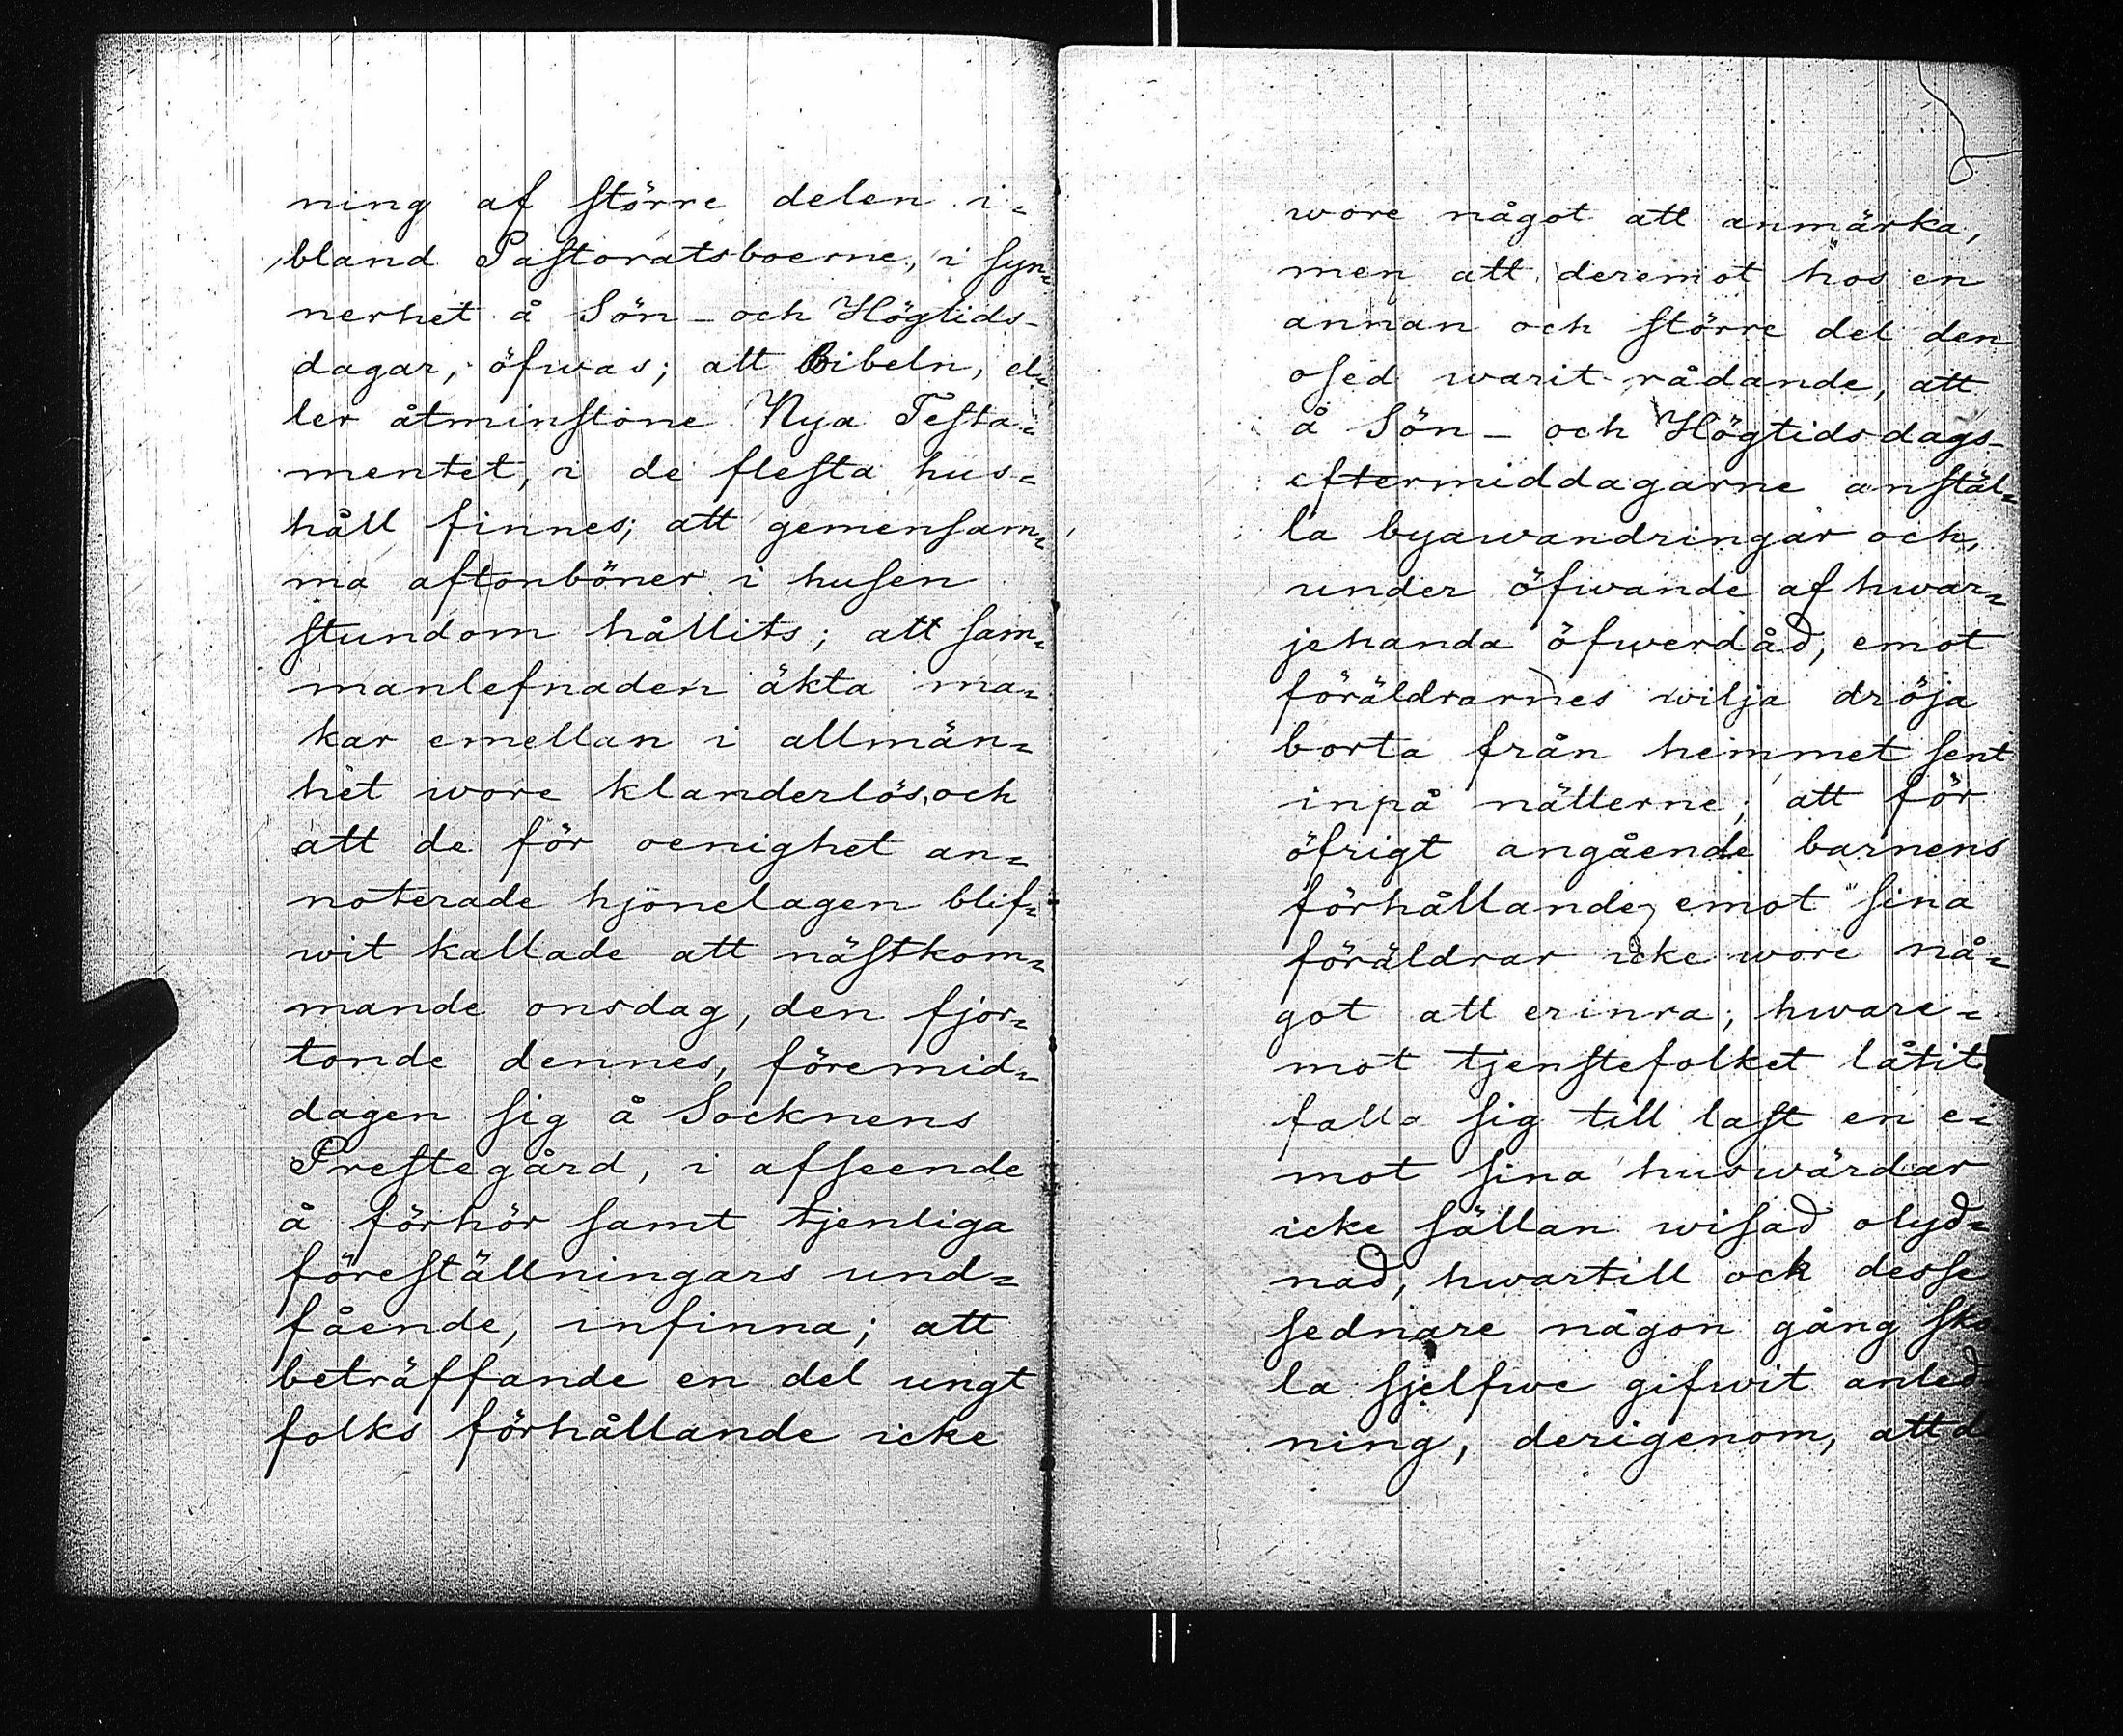 ning af större delen i=
bland Pastoratsboerne, i syn=
nerhet å Sön- och Högtids-
dagar, öfwas; att Bibeln, el=
ler åtminstone Nya Testa=
mentet, i de flesta hus=
håll finnes; att gemensam=
ma aftonböner i husen
stundom hållits; att sam=
manlefnaden äkta ma=
kar emellan i allmän=
het wore klanderlös, och
att de för oenighet an=
noterade hjönelagen blif=
wit kallade att nästkom=
mande onsdag, den fjor=
tonde dennes, föremid=
dagen sig å Socknens
Prestegård, i afseende
å förhör samt tjenliga
föreställningars und=
fående, infinna; att
beträffande en del ungt
folks förhållande icke
wore något att anmärka,
men att deremot hos en
annan och större del den
osed warit rådande, att
å Sön- och Högtidsdags-
eftermiddagarne anstäl=
la byawandringar och,
under öfwande af hwar=
jehanda öfwerdåd, emot
föräldrarnes wilja dröja
borta från hemmet sent
inpå nätterne; att för
öfrigt angående barnens
förhållande emot sina
föräldrar icke wore nå=
got att erinra; hware=
mot tjenstefolket låtit
falla sig till last en e=
mot sina huswärdar
icke sällan wisad olyd=
nad, hwartill ock desse
sednare någon gång sko
la sjelfwe gifwit anled=
ning, derigenom, att de